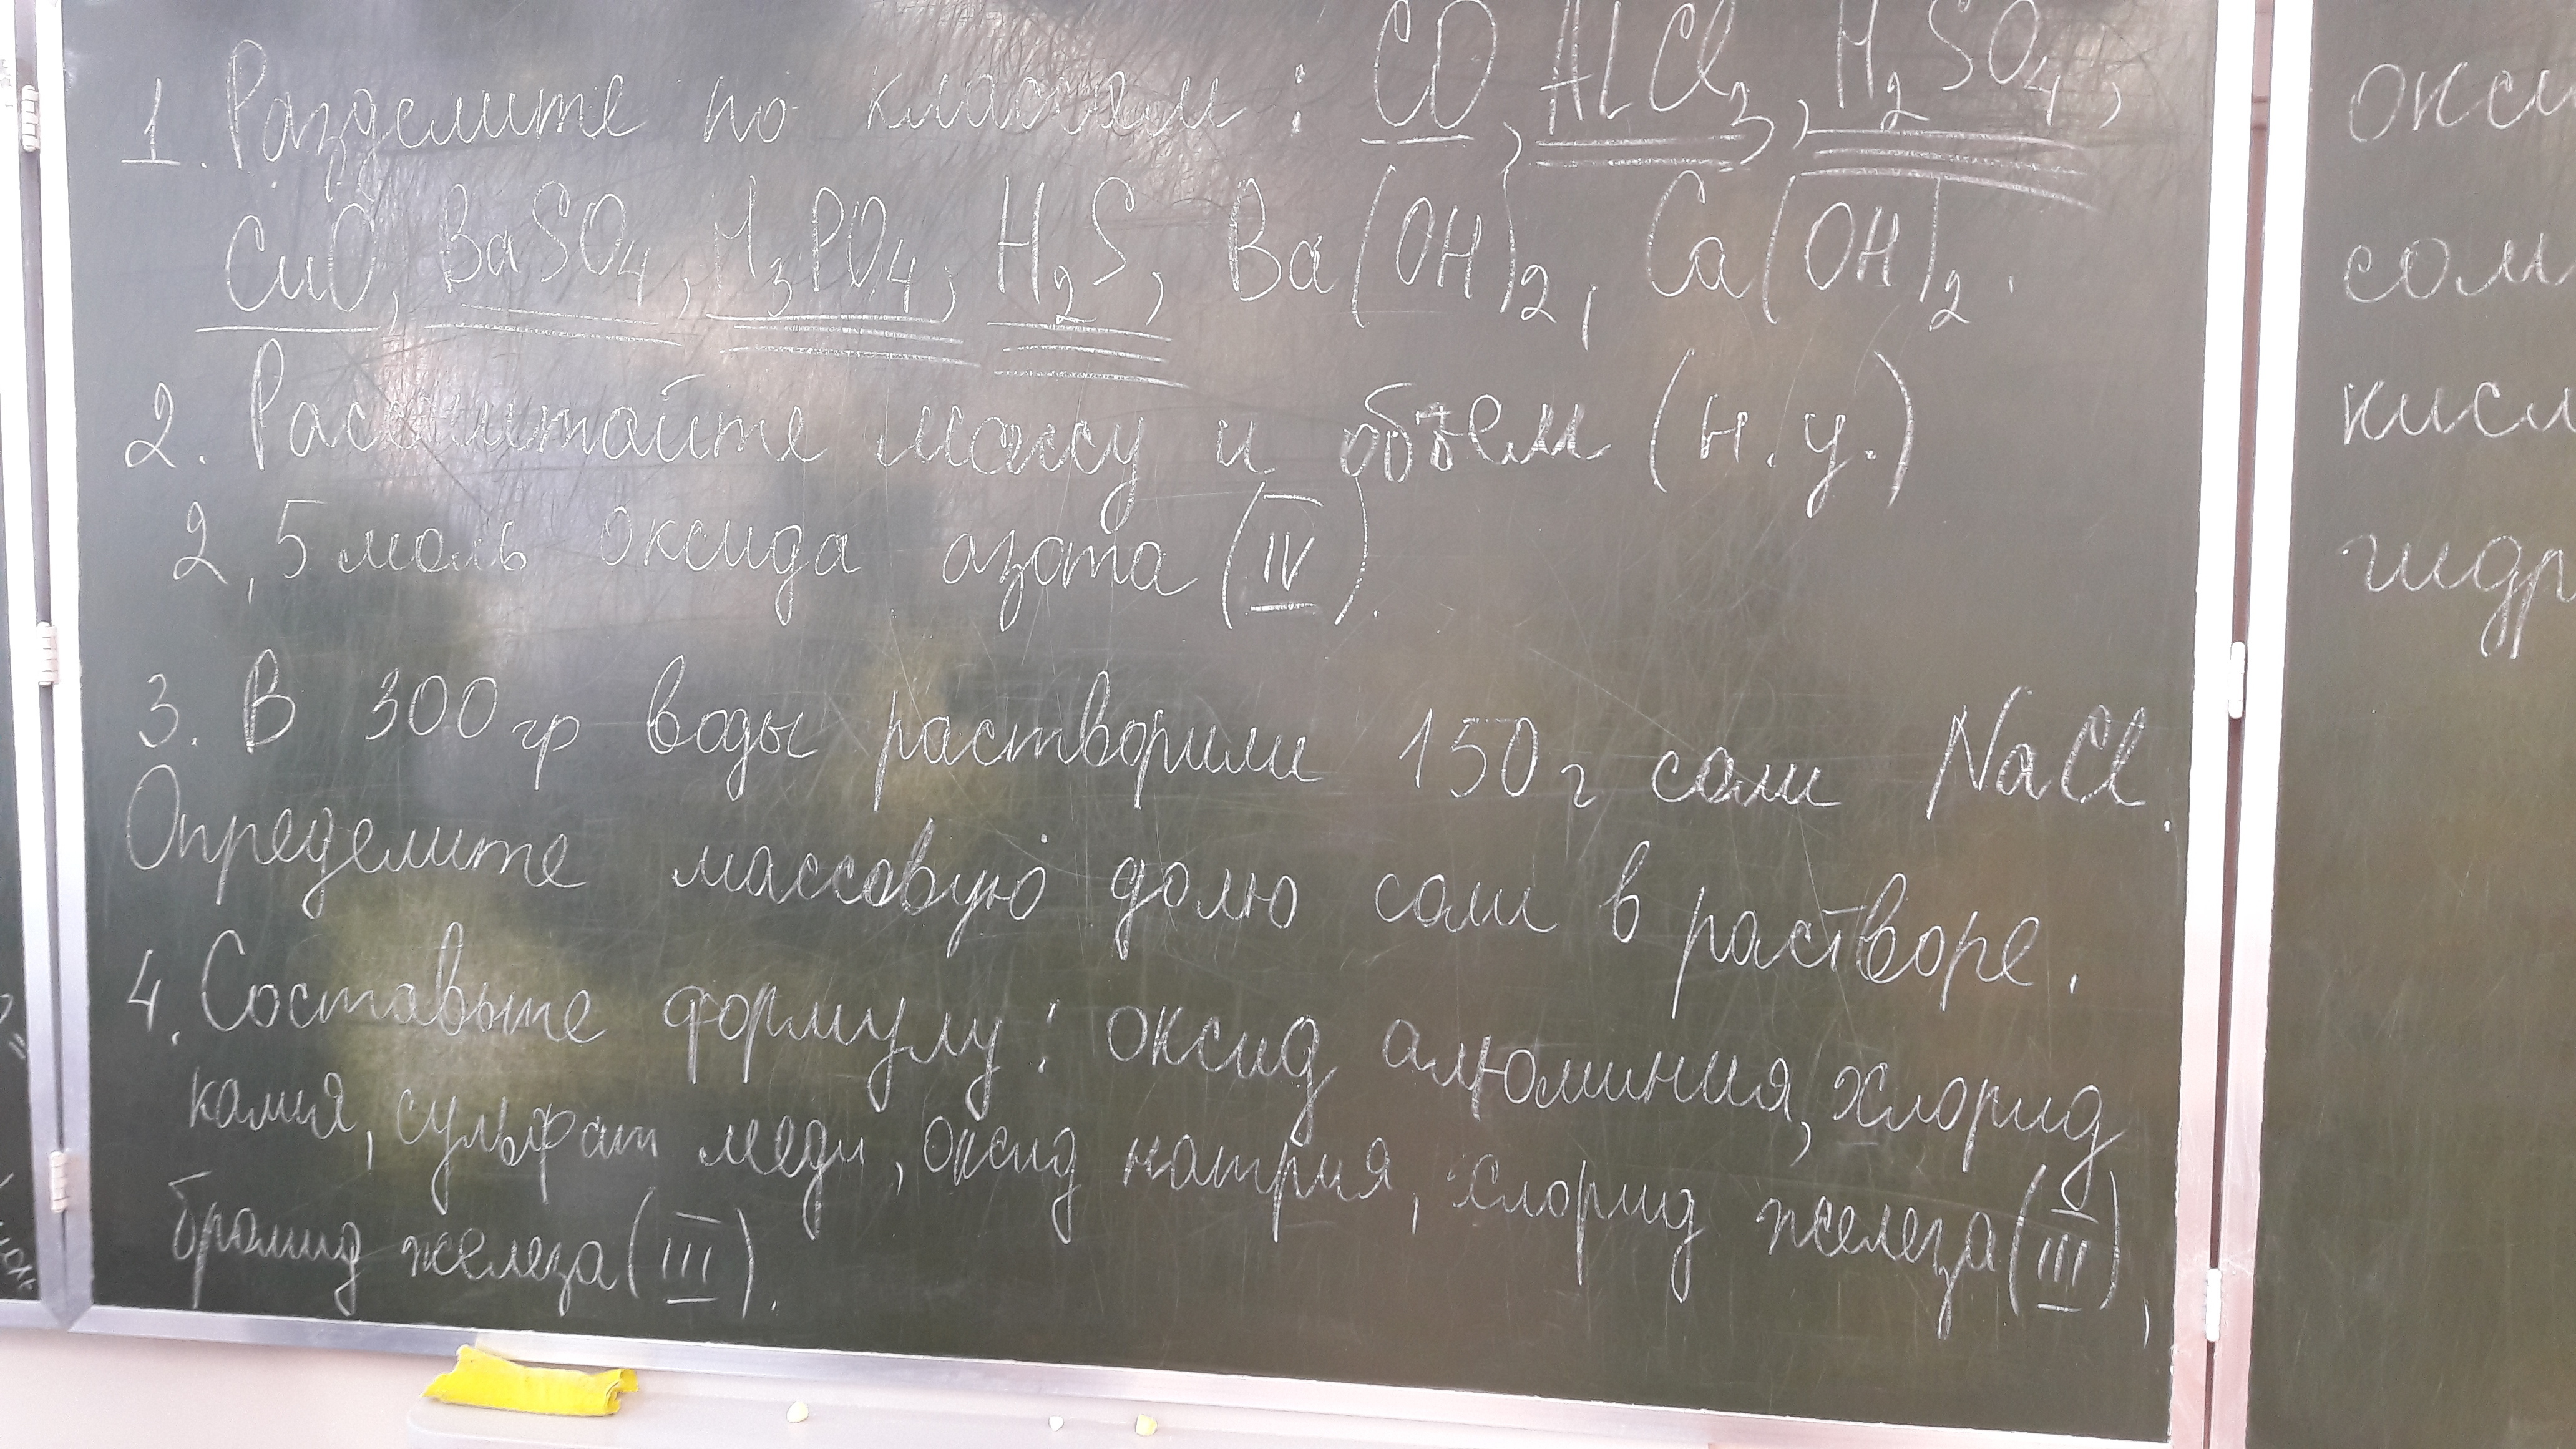 1. Разделите по классам: CO, AlCl3, H2SO4,
CuO, BaSO4, H3PO4, H2S, Ba(OH)2, Ca(OH)2.
2. Рассчитайте массу и объем (н.у.)
2,5 моль оксида азота (IV).
3. В 300 гр воды растворили 150 г соли NaCl.
Определите массовую долю соли в растворе.
4. Составьте формулу: оксид алюминия, хлорид
калия, сульфат меди, оксид натрия, хлорид железа (III),
бромид железа (III).
окси
соли
кисл
гидр